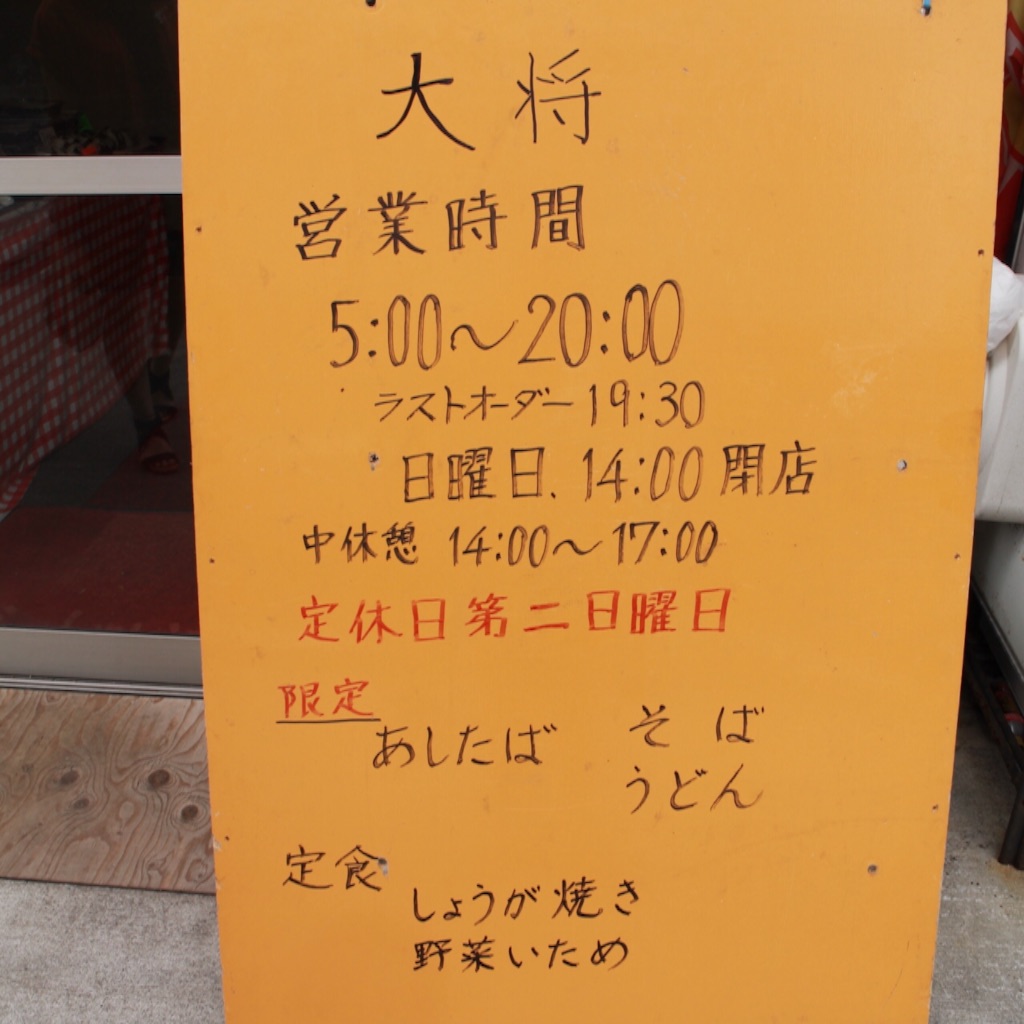 大将
営業時間
5:00〜20:00
ラストオーダー19:30
日曜日、14:00閉店
中休憩 14:00〜17:00
定休日第二日曜日
限定
あしたば そば
うどん
定食
しょうが焼き
野菜いため